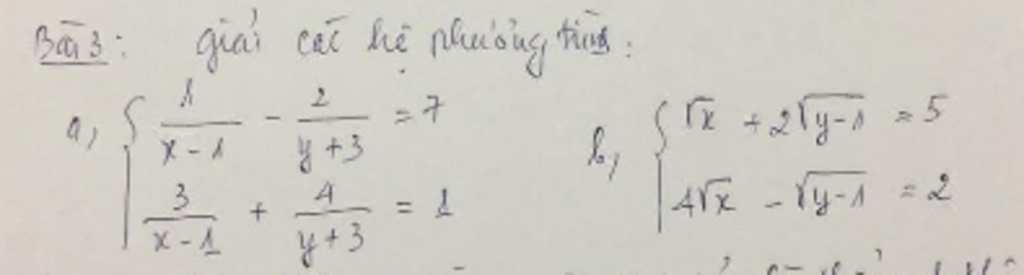 Bài 3: giải các hệ phương trình:
a, { 1/(x-1) - 2/(y+3) = 7
3/(x-1) + 4/(y+3) = 1
b, { √x + 2√(y-1) = 5
4√x - √(y-1) = 2